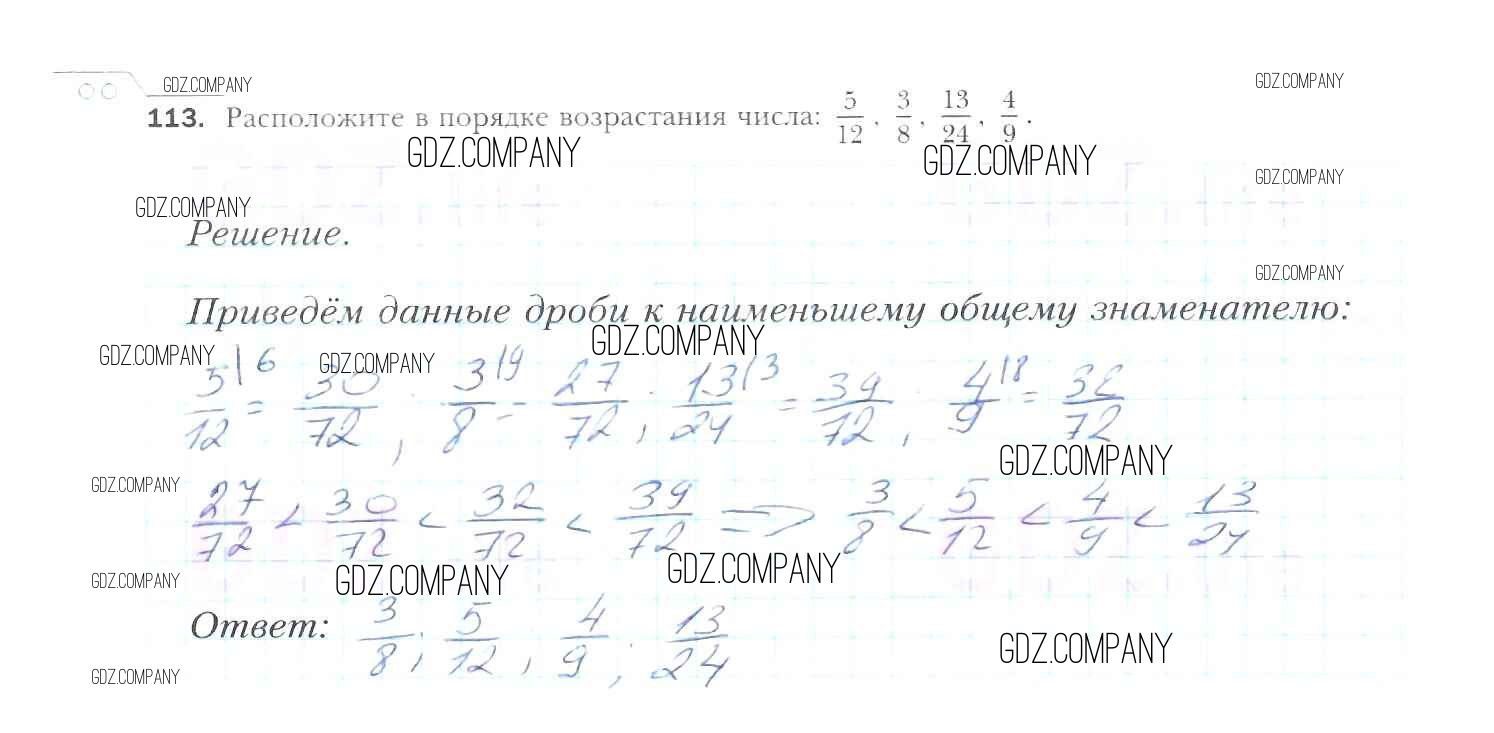 GDZ.COMPANY
GDZ.COMPANY
113. Расположите в порядке возрастания числа: 5/12, 3/8, 13/24, 4/9.
GDZ.COMPANY
GDZ.COMPANY
GDZ.COMPANY
GDZ.COMPANY
Решение.
GDZ.COMPANY
Приведём данные дроби к наименьшему общему знаменателю:
GDZ.COMPANY
GDZ.COMPANY
GDZ.COMPANY
5|6/12 = 30/72, 3|9/8 = 27/72, 13|3/24 = 39/72, 4|8/9 = 32/72
GDZ.COMPANY
GDZ.COMPANY
27/72 < 30/72 < 32/72 < 39/72 => 3/8 < 5/12 < 4/9 < 13/24
GDZ.COMPANY
GDZ.COMPANY
GDZ.COMPANY
Ответ: 3/8, 5/12, 4/9, 13/24
GDZ.COMPANY
GDZ.COMPANY